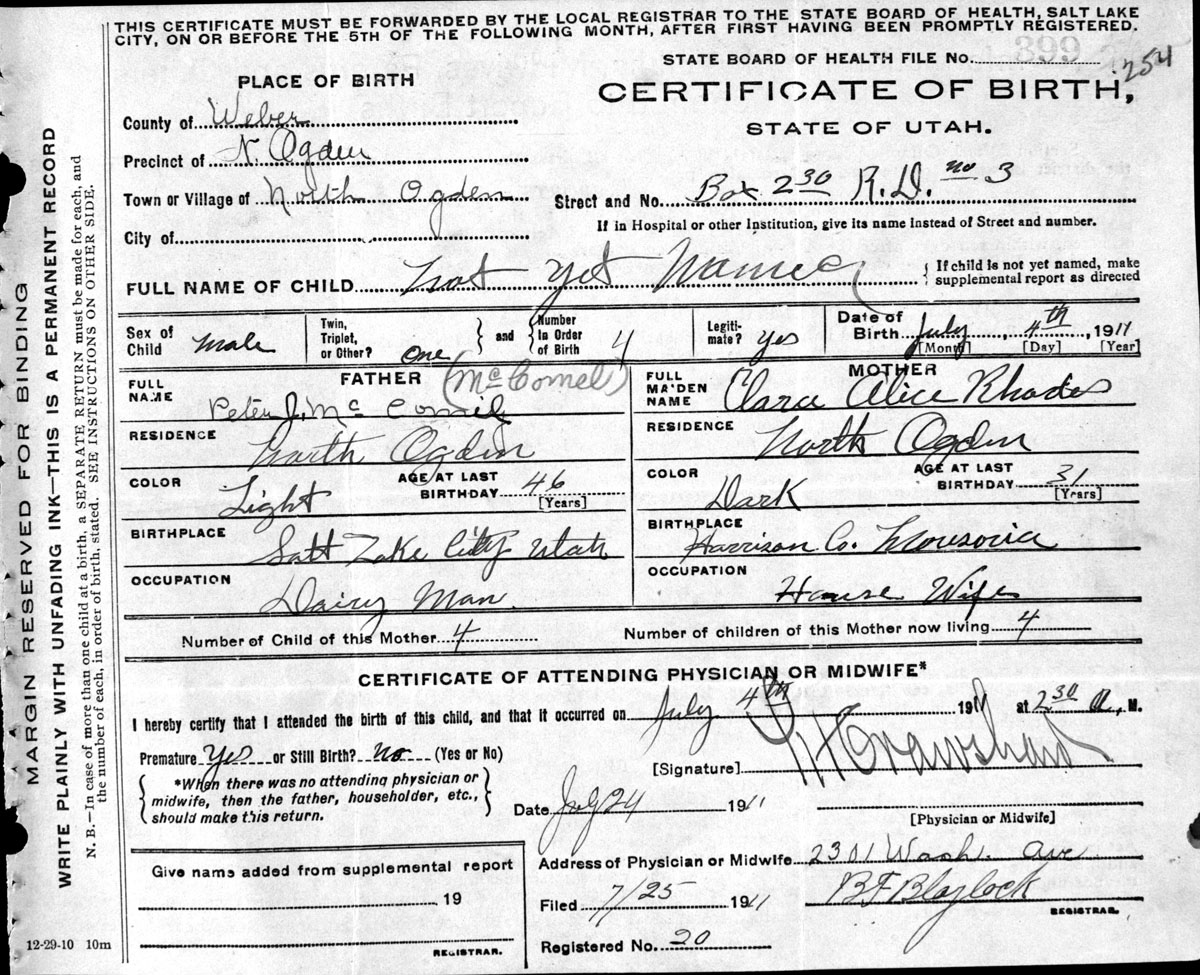 THIS CERTIFICATE MUST BE FORWARDED BY THE LOCAL REGISTRAR TO THE STATE BOARD OF HEALTH, SALT LAKE
CITY, ON OR BEFORE THE 5TH OF THE FOLLOWING MONTH, AFTER FIRST HAVING BEEN PROMPTLY REGISTERED.
MARGIN RESERVED FOR BINDING
WRITE PLAINLY WITH UNFADING INK—THIS IS A PERMANENT RECORD
N. B.—In case of more than one child at a birth, a SEPARATE RETURN must be made for each, and
the number of each, in order of birth, stated. SEE INSTRUCTIONS ON OTHER SIDE.
STATE BOARD OF HEALTH FILE No. 399 254
PLACE OF BIRTH
CERTIFICATE OF BIRTH,
STATE OF UTAH.
County of Weber
Precinct of N. Ogden
Town or Village of North Ogden
Street and No. Box 230 R.D. no 3
If in Hospital or other Institution, give its name instead of Street and number.
City of
FULL NAME OF CHILD not yet Named
{ If child is not yet named, make
supplemental report as directed
Sex of Child male
Twin, Triplet, or Other? one } and { Number In Order of Birth 4
Legiti-mate? yes
Date of Birth July 4th 1911
[Month] [Day] [Year]
FATHER (McConnel)
FULL NAME Peter J. Mc
RESIDENCE North Ogden
COLOR Light
AGE AT LAST BIRTHDAY 46
[Years]
BIRTHPLACE Salt Lake City Utah
OCCUPATION Dairy Man
MOTHER
FULL MAIDEN NAME Clara Alice Rhodes
RESIDENCE North Ogden
COLOR Dark
AGE AT LAST BIRTHDAY 31
[Years]
BIRTHPLACE Harrison Co.
OCCUPATION House Wife
Number of Child of this Mother 4
Number of children of this Mother now living 4
CERTIFICATE OF ATTENDING PHYSICIAN OR MIDWIFE*
I hereby certify that I attended the birth of this child, and that it occurred on July 4th 1911 at 2 30 a, M.
Premature Yes or Still Birth? No (Yes or No)
{ *When there was no attending physician or
midwife, then the father, householder, etc.,
should make this return. }
[Signature] Crawshaw
Date July 24 1911
[Physician or Midwife]
Address of Physician or Midwife 2301 Wash. ave
Give name added from supplemental report
19
REGISTRAR.
Filed 7/25 1911
BF Blaylock
REGISTRAR.
Registered No. 20
12-29-10 10m